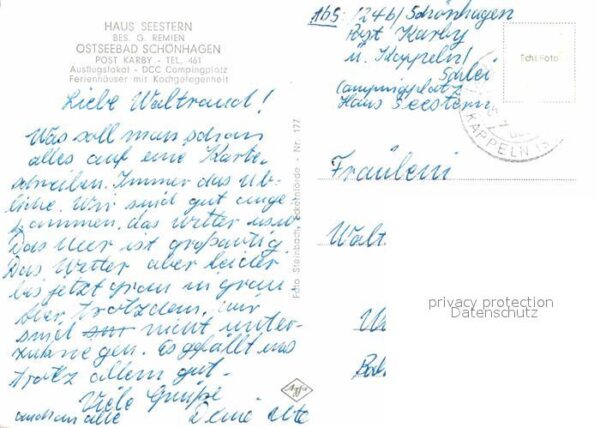 HAUS SEESTERN
BES. G. REMIEN
OSTSEEBAD SCHÖNHAGEN
POST KARBY - TEL. 461
Ausflugslokal - DCC Campingplatz
Ferienhäuser mit Kochgelegenheit
Liebe Waltraud!
Was soll man schon
alles auf eine Karte
schreiben. Immer das Üb-
liche. Wir sind gut ange
kommen, das Wetter usw
Das Meer ist großartig.
Das Wetter aber leider
bis jetzt grau in grau
Aber trotzdem, wir
sind nicht unter-
zukriegen. Es gefällt uns
trotz allem gut.
Viele Grüße
auch an alle Deine alte
Foto Steinbach, Eckernförde - Nr. 177
Agfa
Abs: (24b) Schönhagen
Post Karby
ü. Kappeln/
Schlei
Campingplatz
Haus Seestern
Echt Foto
KAPPELN
Fräulein
Walt
privacy protection
Datenschutz